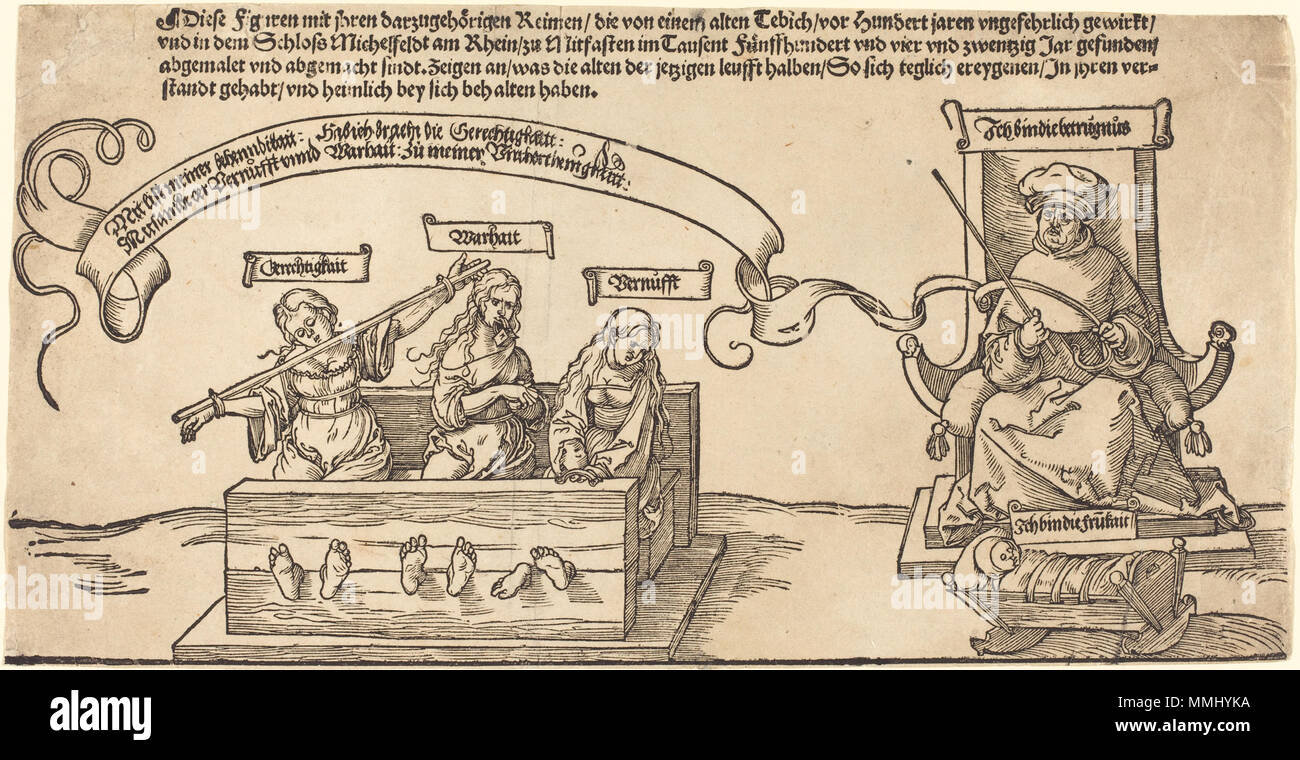 Diese Figuren mit jhren darzugehörigen Reimen/ die von einem alten Tebich/ vor Hundert jaren vngefehrlich gewirkt/
vnd in dem Schloß Michelfeldt am Rhein/ zu Mitfasten im Tausent Fünffhundert vnd vier vnd zwentzig Jar gefunden/
abgemalet vnd abgemacht sindt. Zeigen an/ was die alten der jetzigen leufft halben/ So sich teglich ereygenen/ In jhren ver⸗
standt gehabt/ vnd heimlich bey sich behalten haben.
Mit list meiner behenndikait: Hab ich bracht die Gerechtigkait:
der Vernüfft vnnd Warhait: Zu meiner
Ich bin die betrugnüs
Warhait
Gerechtigkait
Vernüfft
Ich bin die frükait
alamy
Image ID: MMHYKA
www.alamy.com